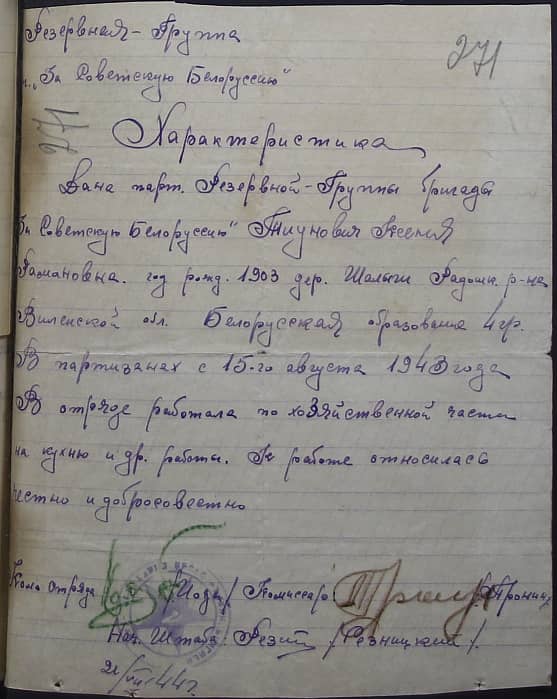 Резервная-Группа
271
„За Советскую Белоруссию"
271
Характеристика
Дана парт. Резервной-Группы бригады
За Советскую Белоруссию" Тиунович Ксения
Рамановна. год рожд. 1903 дер. Шалыги Радошк. р-на
Виленской обл. Белорусская образование 4 гр.
В партизанах с 15-го августа 1943 года
В отряде работала по хозяйственной части
на кухню и др. работы. К работе относилась
честно и добросовестно
Ком. отряда /Иода/ Комиссар /Пронин
Нач. Штаба: Резни /Резницкий/.
21/VII-44г.